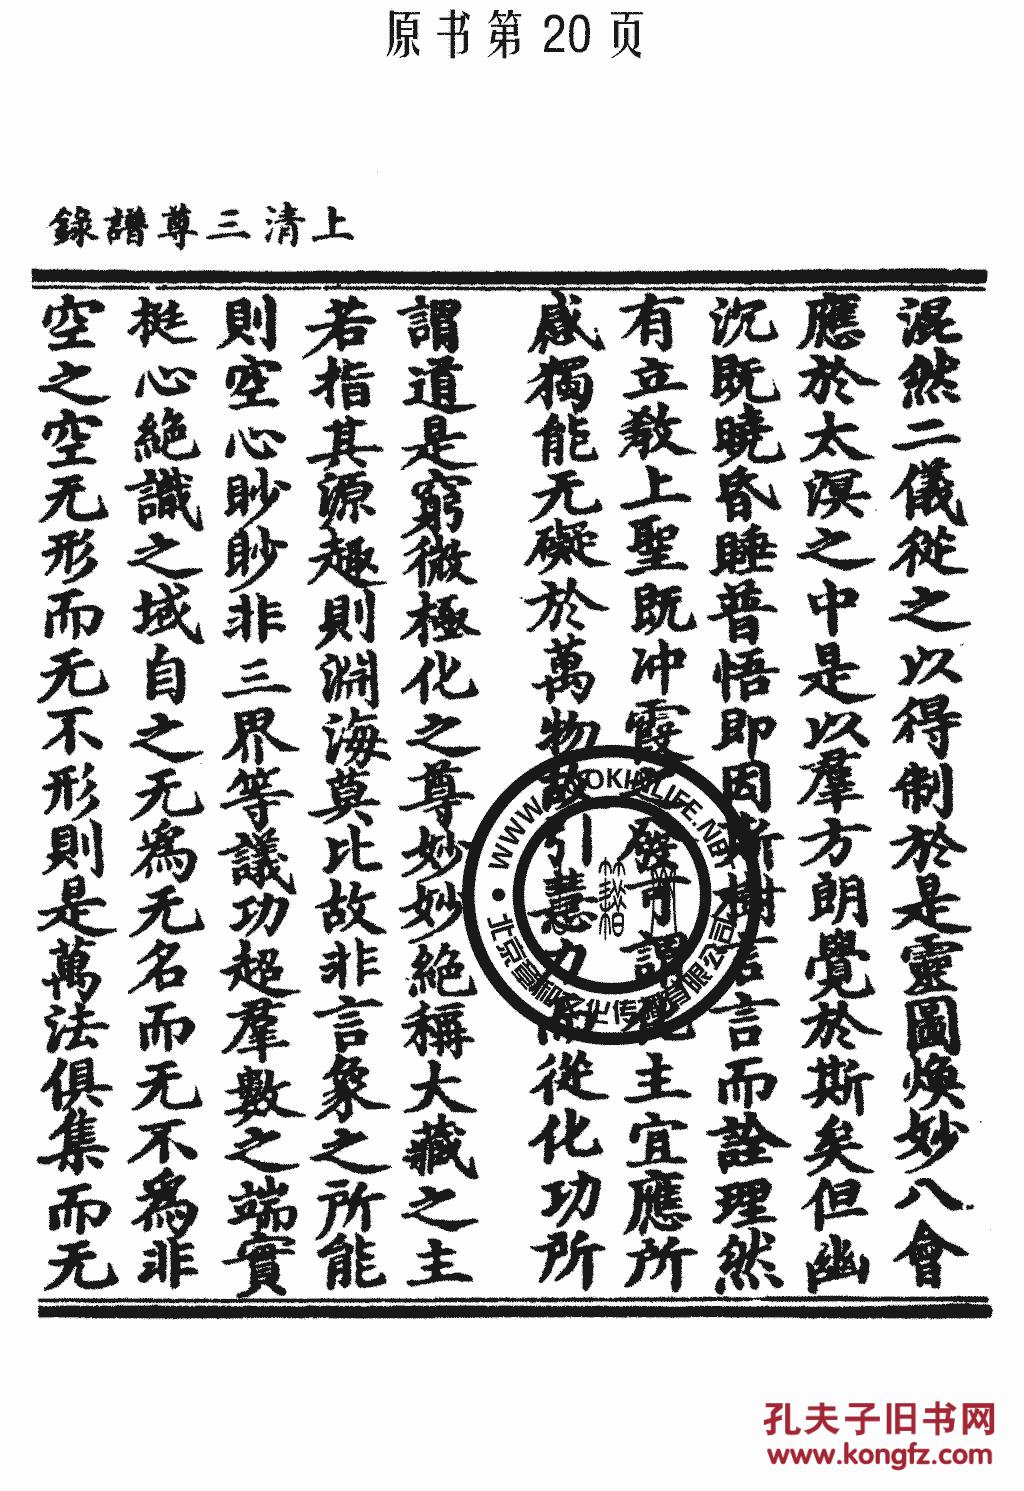 原书第20页
上清三尊譜錄
混然二儀從之以得制於是靈圖煥妙八會
應於太溟之中是以羣方朗覺於斯矣但幽
沉既曉昏睡普悟即因斯樹言言而詮理然
有立教上聖既冲霞 發 可謂 主宜應所
感獨能无礙於萬物故引慧力 從化功所
謂道是窮微極化之尊妙妙絕稱大藏之主
若指其源趣則淵海莫比故非言象之所能
則空心眇眇非三界等議功超羣數之端實
挺心絕識之域自之无為无名而无不為非
空之空无形而无不形則是萬法俱集而无
WWW.BOOKHILIFE.NET
北京 文化传 有限公司
孔夫子旧书网
www.kongfz.com